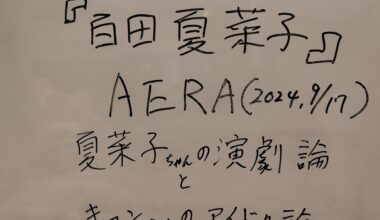 『百田夏菜子』
AERA(2024.9/17)
夏菜子ちゃんの演劇論
と
のアイドル論